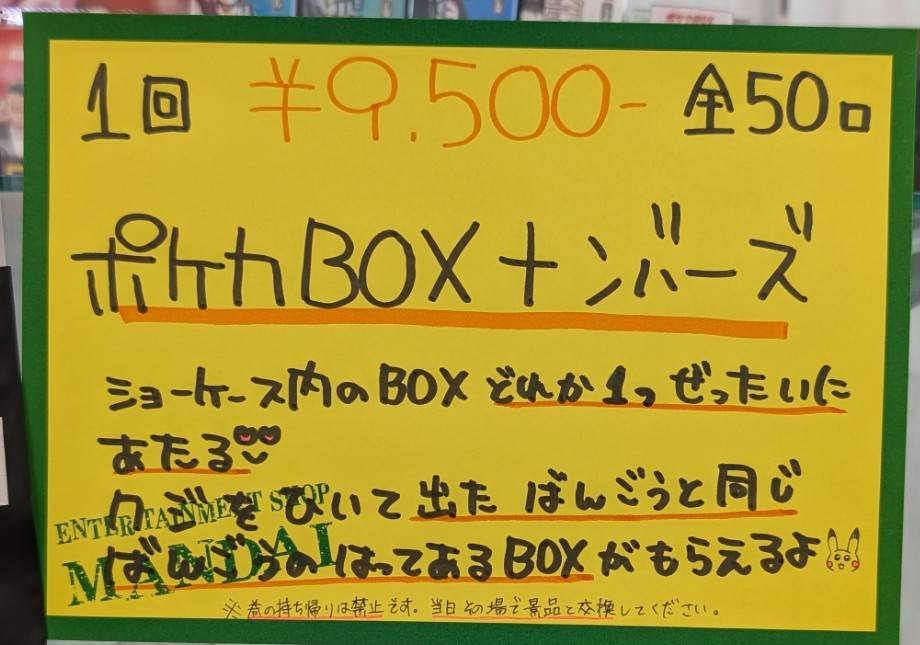 1回 ¥9.500- 全50口
ポケカBOX+ンバーズ
ショーケース内のBOX どれか1つぜったいに
あたる
クジをひいて出た ばんごうと同じ
ばんごうの はってあるBOXがもらえるよ
ENTERTAINMENT SHOP
MANDAI
※巻の持ち帰りは禁止です。当日その場で景品と交換してください。